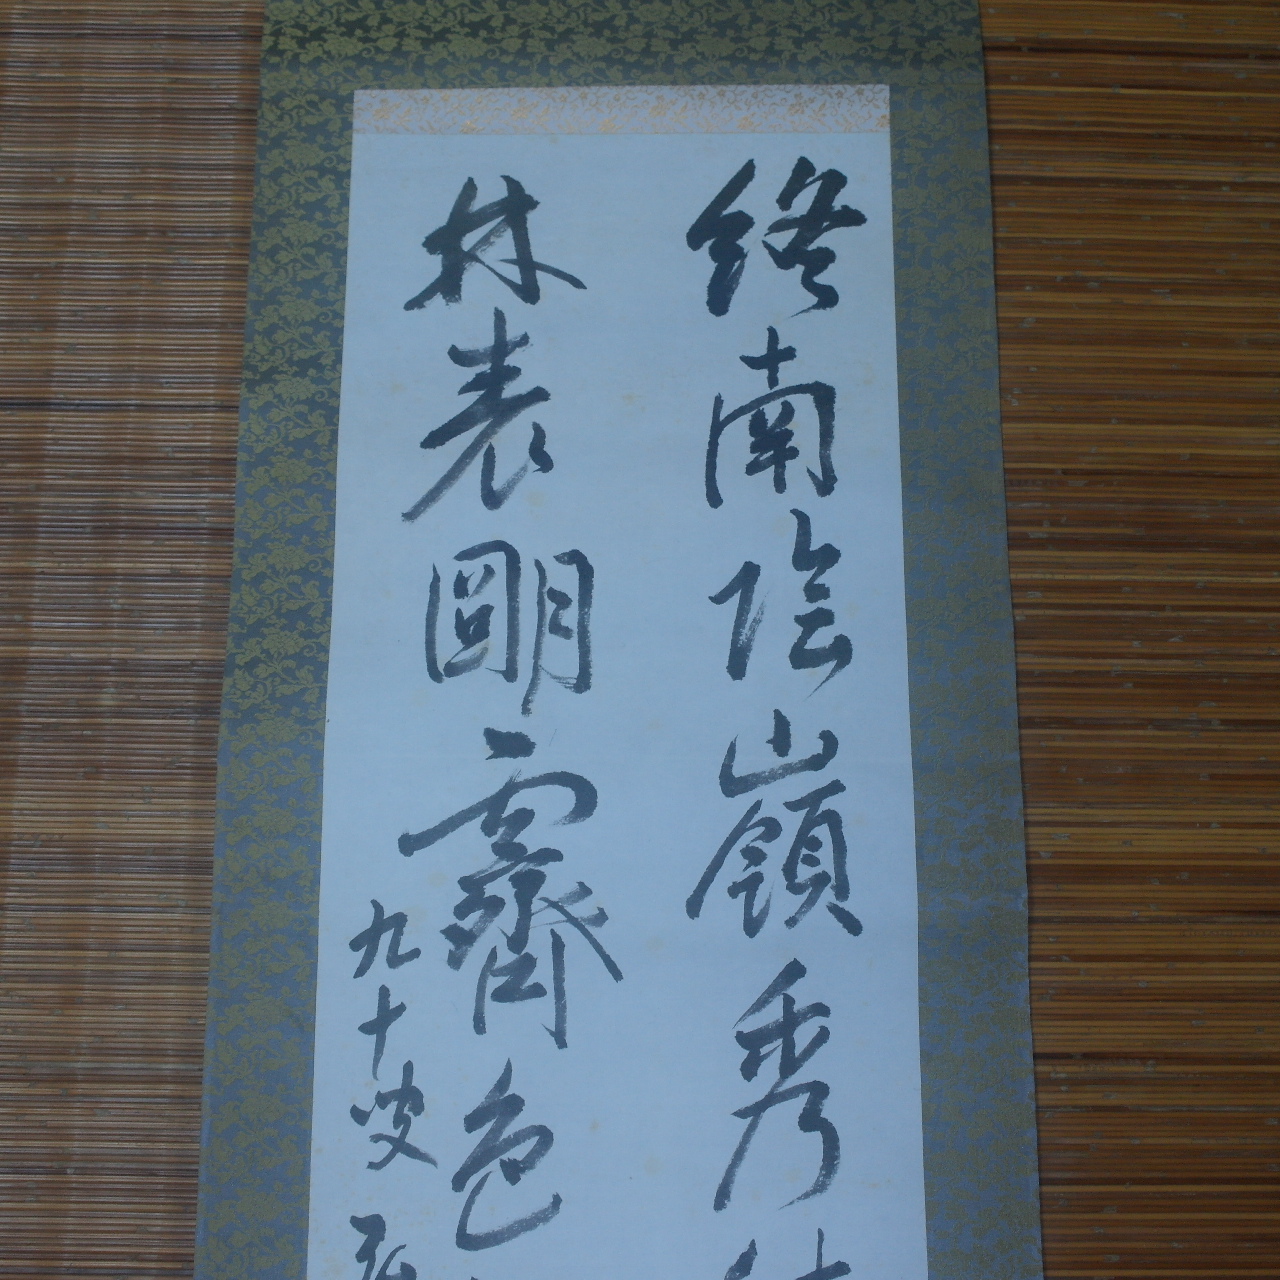 終南陰嶺秀
林表朙霽色
九十叟